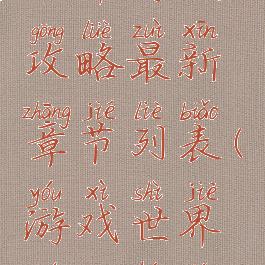 gōng lüè zuì xīn
攻略最新
zhāng jié liè biǎo
章节列表(
yóu xì shì jiè
游戏世界